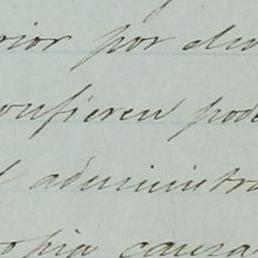 rior por dho
onfieren pode
l administra
opia causa